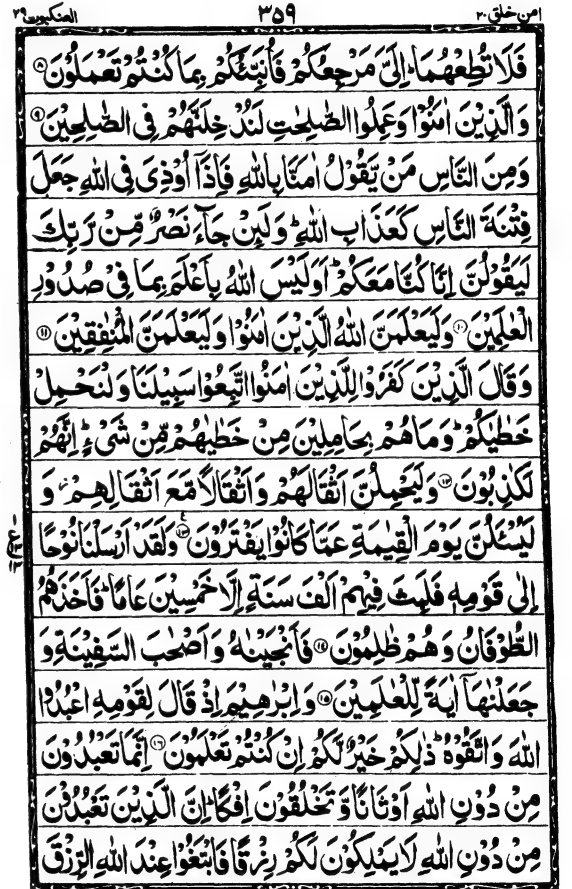 امن خلق ٢٠ ٣٥٩ العنكبوت ٢٩
فَلَا تُطِعْهُمَا ؕ اِلَیَّ مَرْجِعُكُمْ فَاُنَبِّئُكُمْ بِمَا كُنْتُمْ تَعْمَلُوْنَ ۝۸
وَالَّذِیْنَ اٰمَنُوْا وَعَمِلُوا الصّٰلِحٰتِ لَنُدْخِلَنَّهُمْ فِی الصّٰلِحِیْنَ ۝۹
وَمِنَ النَّاسِ مَنْ یَّقُوْلُ اٰمَنَّا بِاللّٰهِ فَاِذَاۤ اُوْذِیَ فِی اللّٰهِ جَعَلَ
فِتْنَةَ النَّاسِ كَعَذَابِ اللّٰهِ ؕ وَلَىِٕنْ جَآءَ نَصْرٌ مِّنْ رَّبِّكَ
لَیَقُوْلُنَّ اِنَّا كُنَّا مَعَكُمْ ؕ اَوَلَیْسَ اللّٰهُ بِاَعْلَمَ بِمَا فِیْ صُدُوْرِ
الْعٰلَمِیْنَ ۝۱۰ وَلَیَعْلَمَنَّ اللّٰهُ الَّذِیْنَ اٰمَنُوْا وَلَیَعْلَمَنَّ الْمُنٰفِقِیْنَ ۝۱۱
وَقَالَ الَّذِیْنَ كَفَرُوْا لِلَّذِیْنَ اٰمَنُوا اتَّبِعُوْا سَبِیْلَنَا وَلْنَحْمِلْ
خَطٰیٰكُمْ ؕ وَمَا هُمْ بِحٰمِلِیْنَ مِنْ خَطٰیٰهُمْ مِّنْ شَیْءٍ ؕ اِنَّهُمْ
لَكٰذِبُوْنَ ۝۱۲ وَلَیَحْمِلُنَّ اَثْقَالَهُمْ وَاَثْقَالًا مَّعَ اَثْقَالِهِمْ ؗ وَ
لَیُسْـَٔلُنَّ یَوْمَ الْقِیٰمَةِ عَمَّا كَانُوْا یَفْتَرُوْنَ ۝۱۳ وَلَقَدْ اَرْسَلْنَا نُوْحًا
اِلٰی قَوْمِهٖ فَلَبِثَ فِیْهِمْ اَلْفَ سَنَةٍ اِلَّا خَمْسِیْنَ عَامًا ؕ فَاَخَذَهُمُ
الطُّوْفَانُ وَهُمْ ظٰلِمُوْنَ ۝۱۴ فَاَنْجَیْنٰهُ وَاَصْحٰبَ السَّفِیْنَةِ وَ
جَعَلْنٰهَاۤ اٰیَةً لِّلْعٰلَمِیْنَ ۝۱۵ وَاِبْرٰهِیْمَ اِذْ قَالَ لِقَوْمِهِ اعْبُدُوا
اللّٰهَ وَاتَّقُوْهُ ؕ ذٰلِكُمْ خَیْرٌ لَّكُمْ اِنْ كُنْتُمْ تَعْلَمُوْنَ ۝۱۶ اِنَّمَا تَعْبُدُوْنَ
مِنْ دُوْنِ اللّٰهِ اَوْثَانًا وَّتَخْلُقُوْنَ اِفْكًا ؕ اِنَّ الَّذِیْنَ تَعْبُدُوْنَ
مِنْ دُوْنِ اللّٰهِ لَا یَمْلِكُوْنَ لَكُمْ رِزْقًا فَابْتَغُوْا عِنْدَ اللّٰهِ الرِّزْقَ